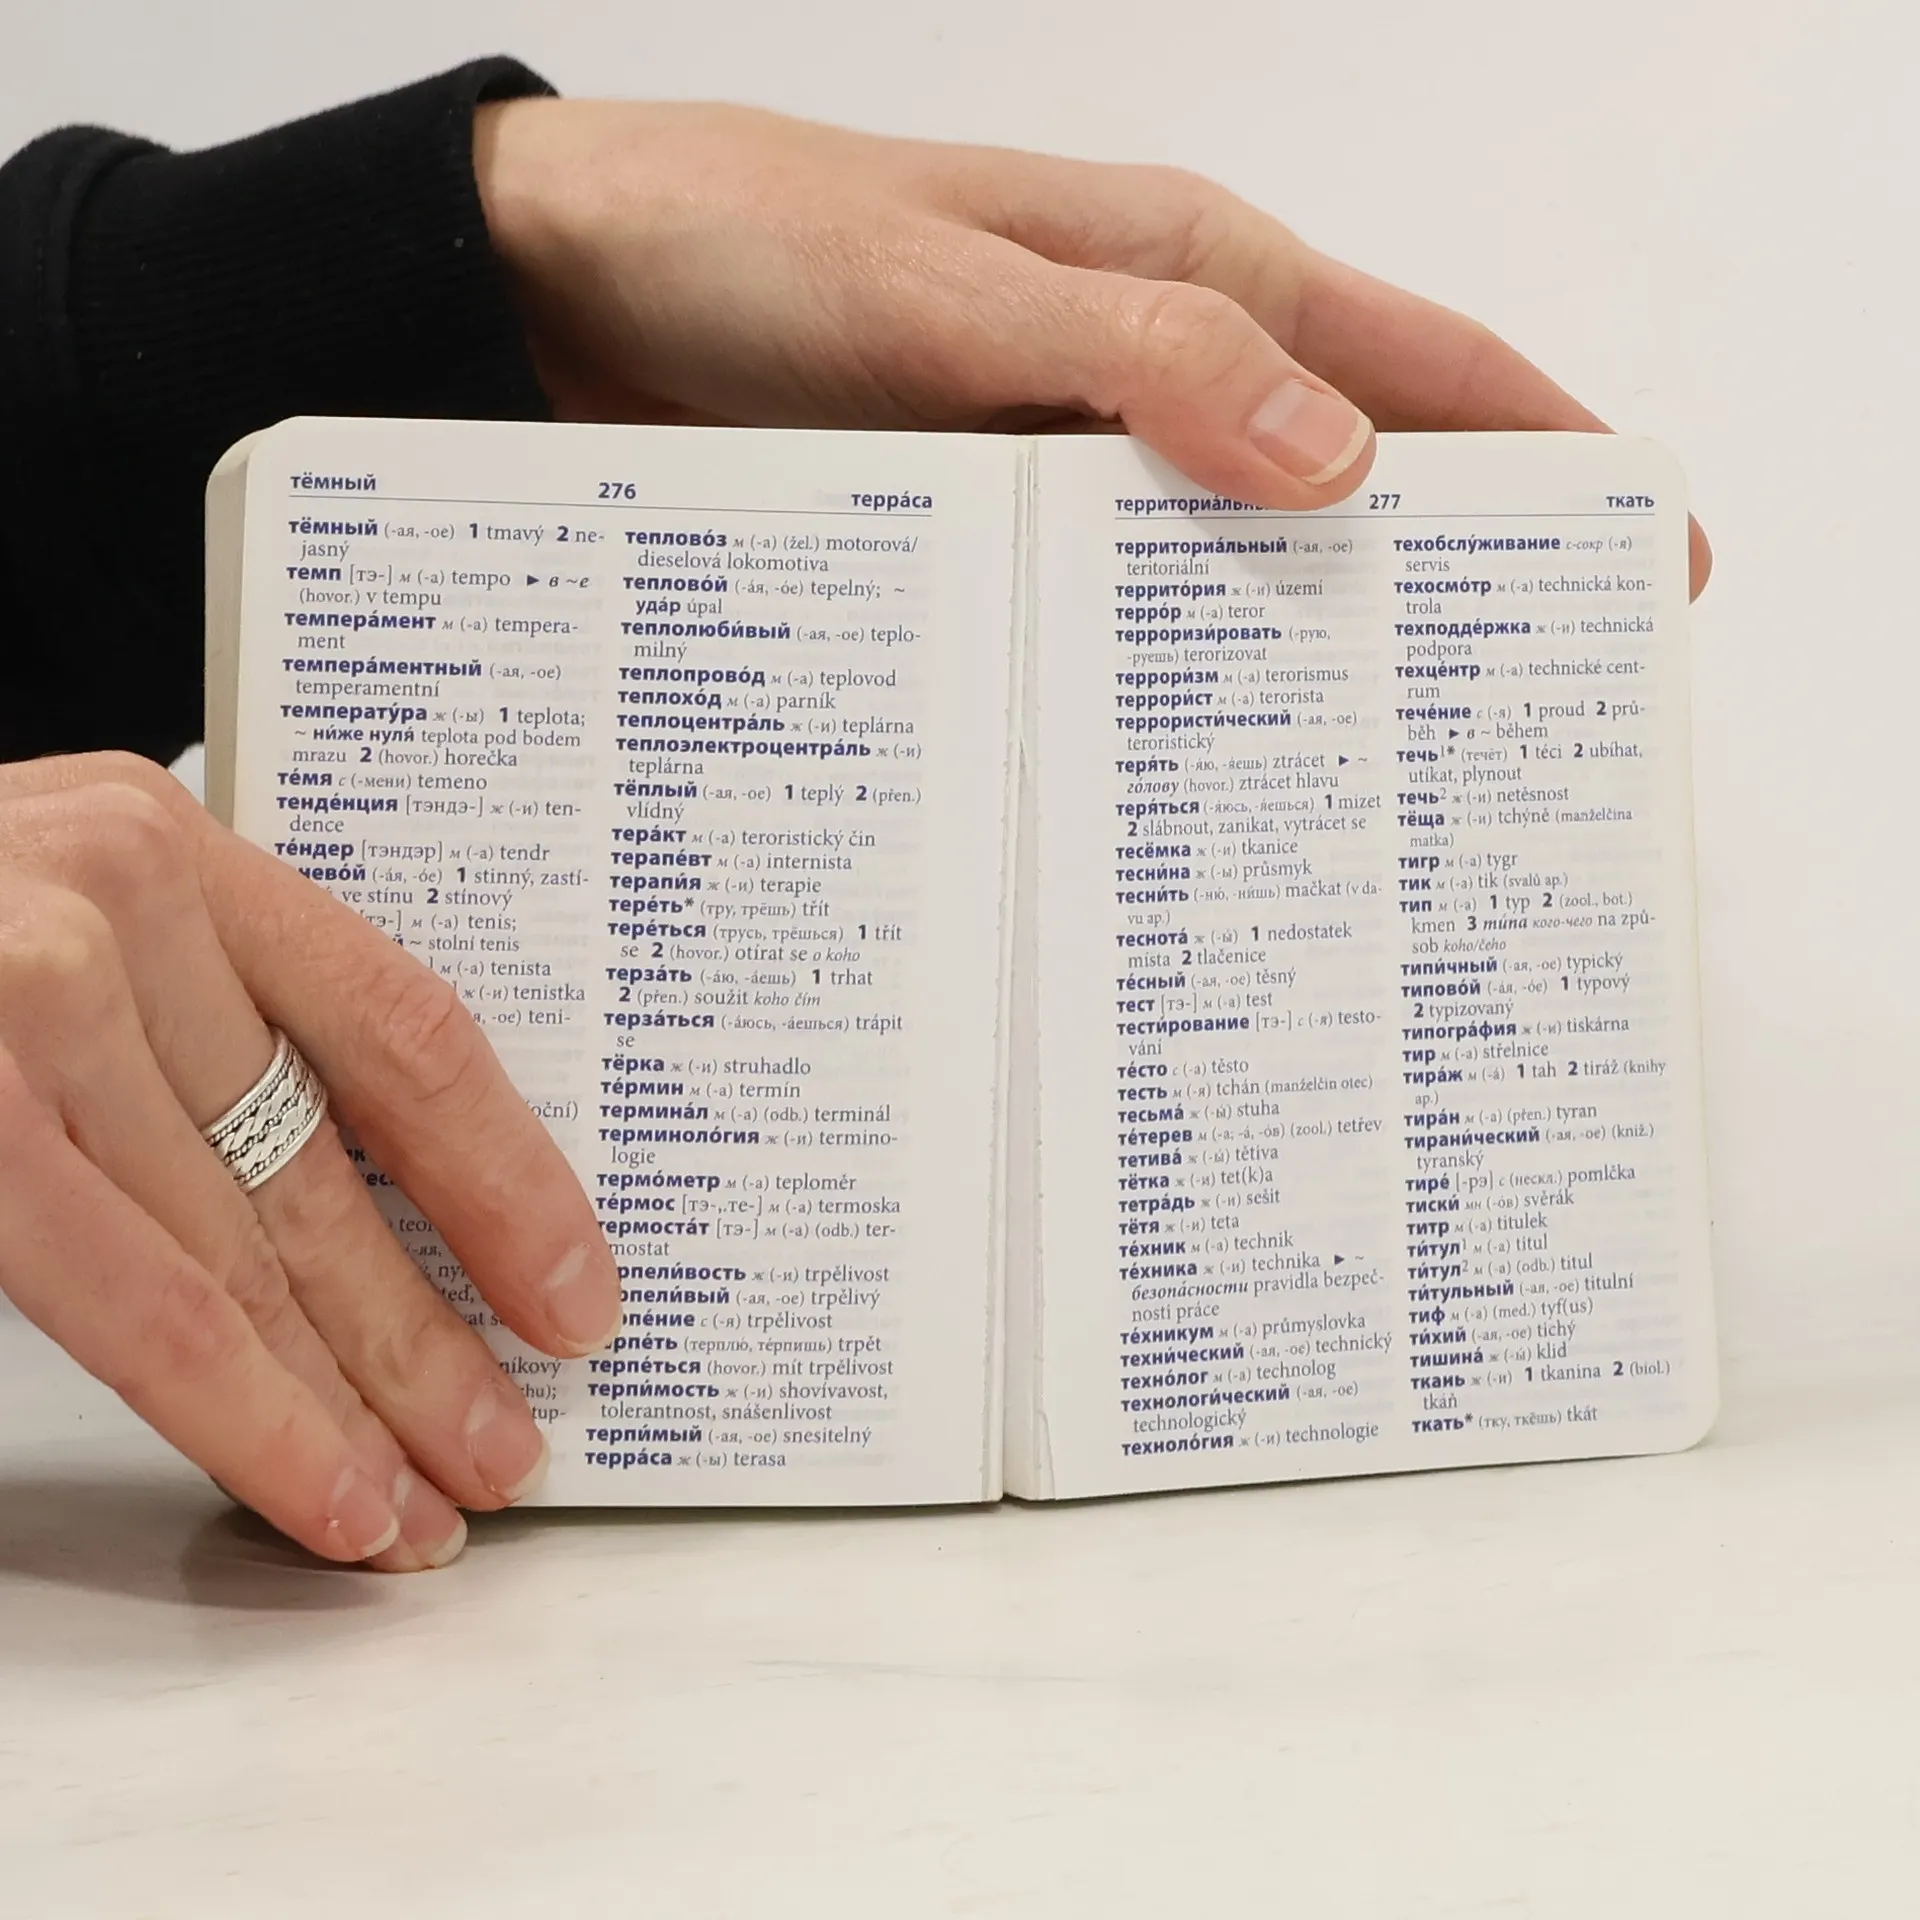 тёмный 276 терра́са
тёмный (-ая, -ое) 1 tmavý 2 ne-
jasný
темп [тэ-] м (-а) tempo ► в ~е
(hovor.) v tempu
темпера́мент м (-а) tempera-
ment
темпера́ментный (-ая, -ое)
temperamentní
температу́ра ж (-ы) 1 teplota;
~ ни́же нуля́ teplota pod bodem
mrazu 2 (hovor.) horečka
те́мя с (-мени) temeno
тенде́нция [тэндэ-] ж (-и) ten-
dence
те́ндер [тэндэр] м (-а) tendr
(-а́я, -о́е) 1 stinný, zastí-
ve stínu 2 stínový
[тэ-] м (-а) tenis;
~ stolní tenis
м (-а) tenista
ж (-и) tenistka
-ое) teni-
теплово́з м (-а) (žel.) motorová/
dieselová lokomotiva
теплово́й (-а́я, -о́е) tepelný; ~
уда́р úpal
теплолюби́вый (-ая, -ое) teplo-
milný
теплопрово́д м (-а) teplovod
теплохо́д м (-а) parník
теплоцентра́ль ж (-и) teplárna
теплоэлектроцентра́ль ж (-и)
teplárna
тёплый (-ая, -ое) 1 teplý 2 (přen.)
vlídný
тера́кт м (-а) teroristický čin
терапе́вт м (-а) internista
терапи́я ж (-и) terapie
тере́ть* (тру, трёшь) třít
тере́ться (трусь, трёшься) 1 třít
se 2 (hovor.) otírat se o koho
терза́ть (-а́ю, -а́ешь) 1 trhat
2 (přen.) soužit koho čím
терза́ться (-а́юсь, -а́ешься) trápit
se
тёрка ж (-и) struhadlo
те́рмин м (-а) termín
термина́л м (-а) (odb.) terminál
терминоло́гия ж (-и) termino-
logie
термо́метр м (-а) teploměr
те́рмос [тэ-,.те-] м (-а) termoska
термоста́т [тэ-] м (-а) (odb.) ter-
mostat
ж (-и) trpělivost
(-ая, -ое) trpělivý
с (-я) trpělivost
(терплю́, те́рпишь) trpět
терпе́ться (hovor.) mít trpělivost
терпи́мость ж (-и) shovívavost,
tolerantnost, snášenlivost
терпи́мый (-ая, -ое) snesitelný
терра́са ж (-ы) terasa
277 ткать
территориа́льный (-ая, -ое)
teritoriální
террито́рия ж (-и) území
терро́р м (-а) teror
терроризи́ровать (-рую,
-руешь) terorizovat
террори́зм м (-а) terorismus
террори́ст м (-а) terorista
террористи́ческий (-ая, -ое)
teroristický
теря́ть (-я́ю, -я́ешь) ztrácet ► ~
го́лову (hovor.) ztrácet hlavu
теря́ться (-я́юсь, -я́ешься) 1 mizet
2 slábnout, zanikat, vytrácet se
тесёмка ж (-и) tkanice
тесни́на ж (-ы) průsmyk
тесни́ть (-ню́, -ни́шь) mačkat (v da-
vu ap.)
теснота́ ж (-ы́) 1 nedostatek
místa 2 tlačenice
те́сный (-ая, -ое) těsný
тест [тэ-] м (-а) test
тести́рование [тэ-] с (-я) testo-
vání
те́сто с (-а) těsto
тесть м (-я) tchán (manželčin otec)
тесьма́ ж (-ы́) stuha
те́терев м (-а; -а́, -о́в) (zool.) tetřev
тетива́ ж (-ы́) tětiva
тётка ж (-и) tet(k)a
тетра́дь ж (-и) sešit
тётя ж (-и) teta
те́хник м (-а) technik
те́хника ж (-и) technika ► ~
безопа́сности pravidla bezpeč-
nosti práce
те́хникум м (-а) průmyslovka
техни́ческий (-ая, -ое) technický
техно́лог м (-а) technolog
технологи́ческий (-ая, -ое)
technologický
техноло́гия ж (-и) technologie
техобслу́живание с-сокр (-я)
servis
техосмо́тр м (-а) technická kon-
trola
техподде́ржка ж (-и) technická
podpora
техце́нтр м (-а) technické cent-
rum
тече́ние с (-я) 1 proud 2 prů-
běh ► в ~ během
течь¹* (течёт) 1 téci 2 ubíhat,
utíkat, plynout
течь² ж (-и) netěsnost
тёща ж (-и) tchýně (manželčina
matka)
тигр м (-а) tygr
тик м (-а) tik (svalů ap.)
тип м (-а) 1 typ 2 (zool., bot.)
kmen 3 ти́па кого-чего na způ-
sob koho/čeho
типи́чный (-ая, -ое) typický
типово́й (-а́я, -о́е) 1 typový
2 typizovaný
типогра́фия ж (-и) tiskárna
тир м (-а) střelnice
тира́ж м (-а́) 1 tah 2 tiráž (knihy
ap.)
тира́н м (-а) (přen.) tyran
тирани́ческий (-ая, -ое) (kniž.)
tyranský
тире́ [-рэ] с (нескл.) pomlčka
тиски́ мн (-о́в) svěrák
титр м (-а) titulek
ти́тул¹ м (-а) titul
ти́тул² м (-а) (odb.) titul
ти́тульный (-ая, -ое) titulní
тиф м (-а) (med.) tyf(us)
ти́хий (-ая, -ое) tichý
тишина́ ж (-ы́) klid
ткань ж (-и) 1 tkanina 2 (biol.)
tkáň
ткать* (тку, ткёшь) tkát